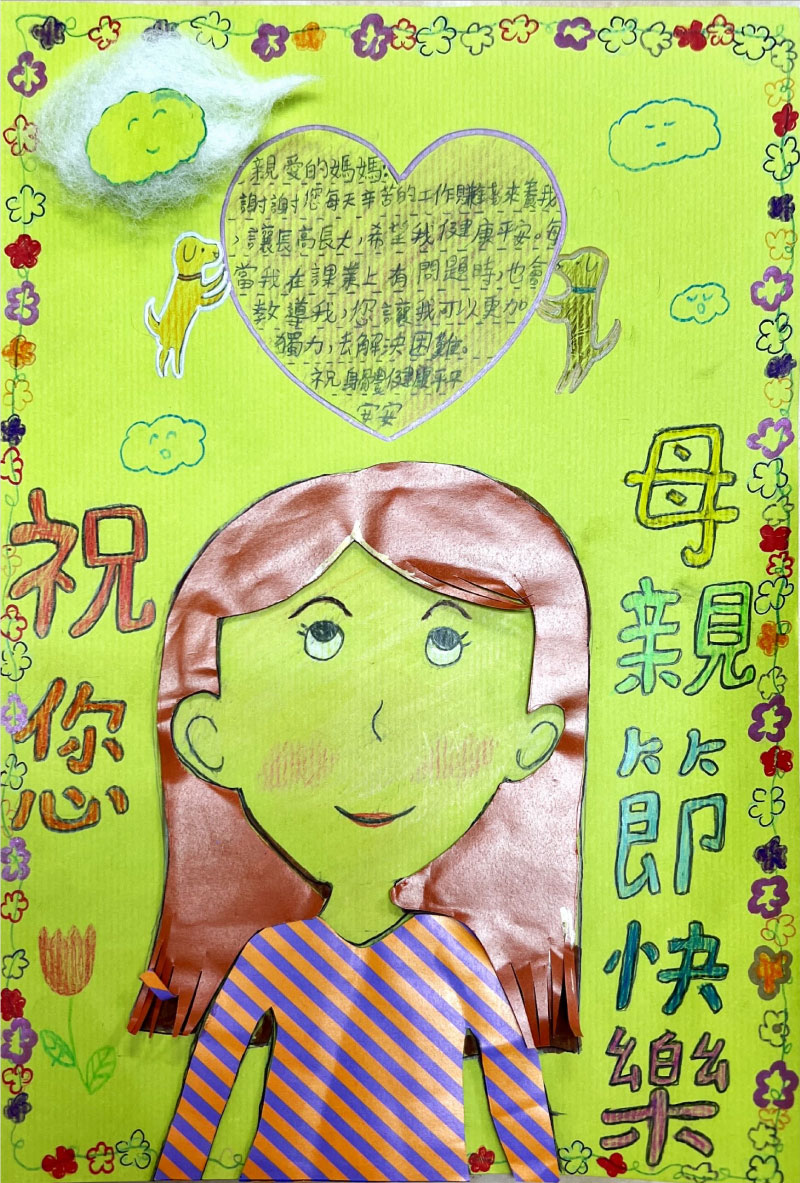 親愛的媽媽:
謝謝您每天辛苦的工作賺錢來養我
,讓長高長大,希望我健康平安。每
當我在課業上有問題時,也會
教導我,您讓我可以更加
獨力,去解決困難。
祝身體健康平平
安安
祝您
母親節快樂